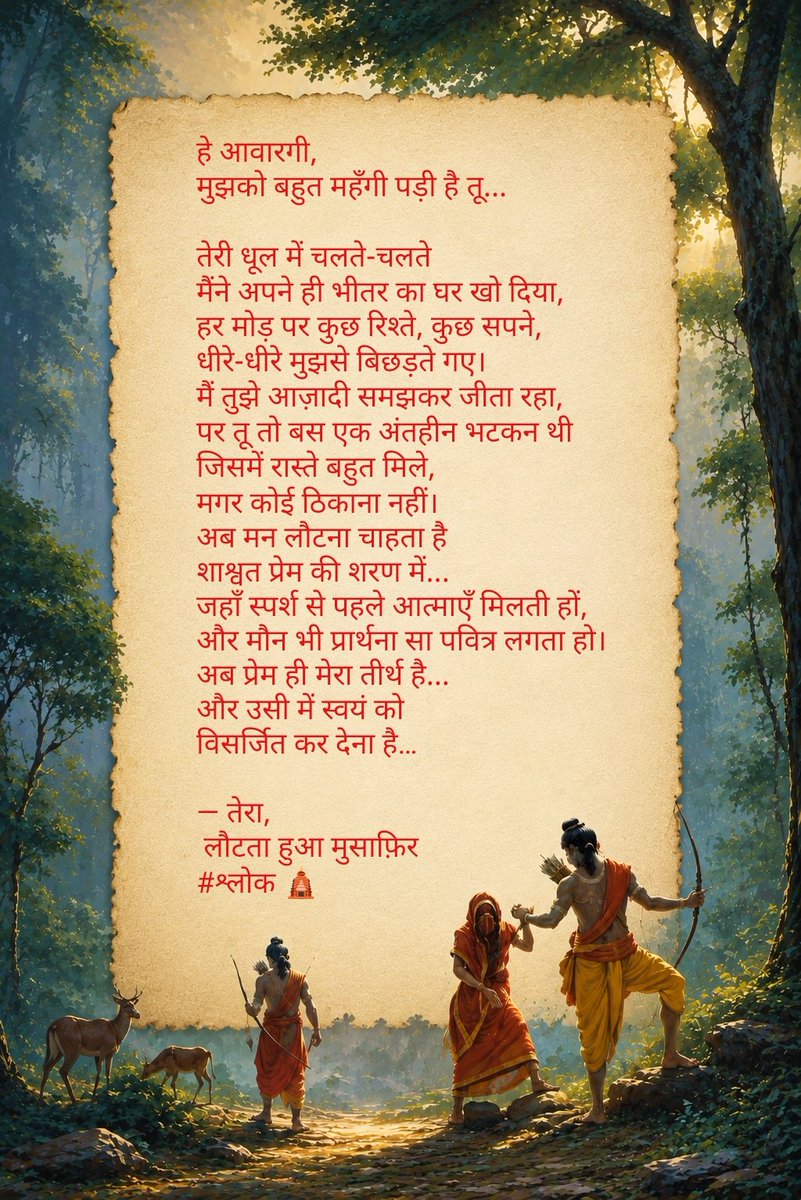 हे आवारगी,
मुझको बहुत महँगी पड़ी है तू...
तेरी धूल में चलते-चलते
मैंने अपने ही भीतर का घर खो दिया,
हर मोड़ पर कुछ रिश्ते, कुछ सपने,
धीरे-धीरे मुझसे बिछड़ते गए।
मैं तुझे आज़ादी समझकर जीता रहा,
पर तू तो बस एक अंतहीन भटकन थी
जिसमें रास्ते बहुत मिले,
मगर कोई ठिकाना नहीं।
अब मन लौटना चाहता है
शाश्वत प्रेम की शरण में...
जहाँ स्पर्श से पहले आत्माएँ मिलती हों,
और मौन भी प्रार्थना सा पवित्र लगता हो।
अब प्रेम ही मेरा तीर्थ है...
और उसी में स्वयं को
विसर्जित कर देना है...
— तेरा,
लौटता हुआ मुसाफ़िर
#श्लोक 🛕